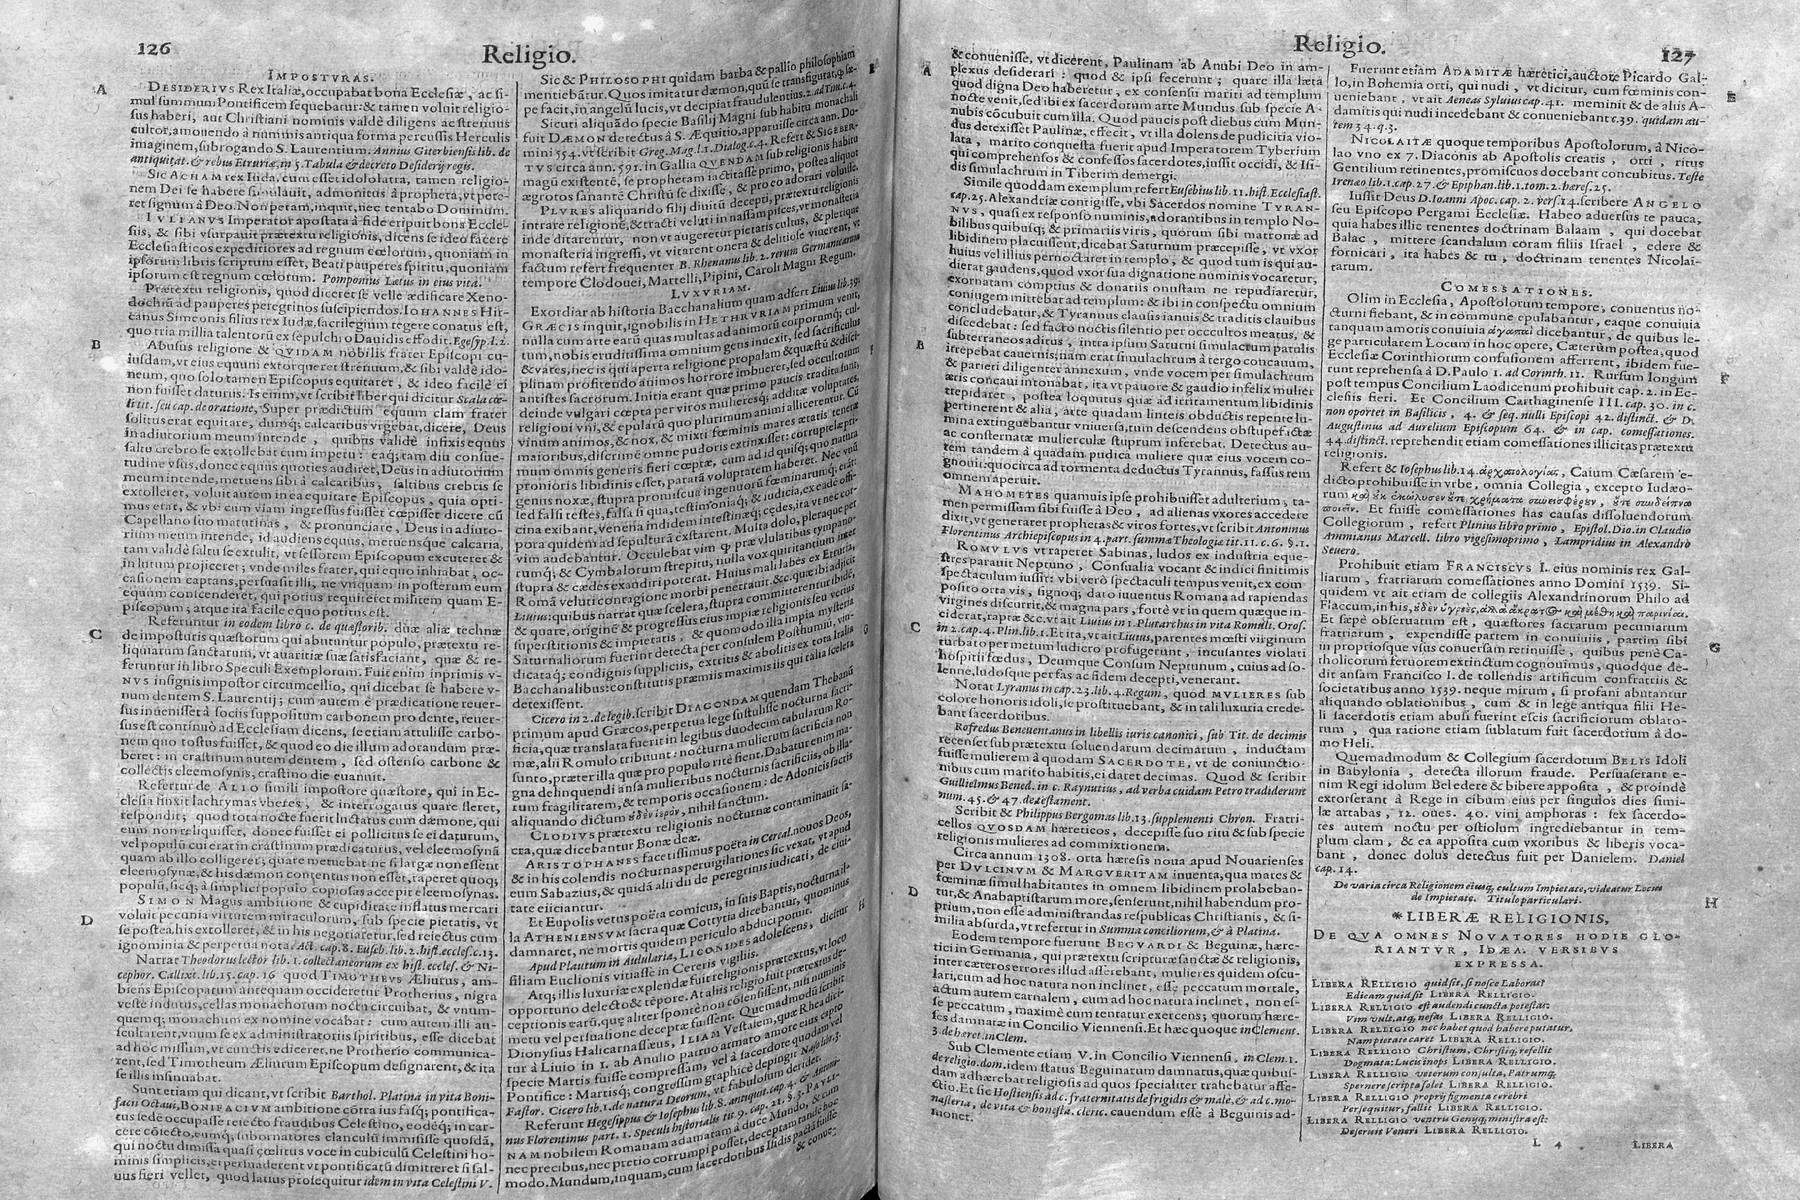 126
Religio.
IMPOSTVRAS.
A
DESIDERIVS Rex Italiæ, occupat bona Ecclesiæ, ac si-
mul summum Pontificem sequebatur: & tamen voluit religio-
sus haberi, aut Christiani nominis valdè diligens ac strenuus
cultor, amouendo à numinis antiqua forma percussis Herculis
imaginem, subrogando S. Laurentium. Annius Giterbiensis lib. de
antiquitat. & rebus Etruriæ, in 5. Tabula & decreto Desiderij regis.
Sic ACHAM rex Iuda, cum esset idololatra, tamen religio-
nem Dei se habere simulauit, admonitus à propheta, vt pete-
ret signum à Deo. Non petam, inquit, nec tentabo Dominum.
IVLIANVS Imperator apostata à fide eripuit bona Eccle-
siis, & sibi vsurpauit prætextu religionis, dicens se ideo facere
Ecclesiasticos expeditiores ad regnum cœlorum, quoniam in
ipsorum libris scriptum esset, Beati pauperes spiritu, quoniam
ipsorum est regnum cœlorum. Pomponius Lætus in eius vita.
Prætextu religionis, quod diceret se velle ædificare Xeno-
dochiũ ad pauperes peregrinos suscipiendos. IOHANNES Hir-
canus Simeonis filius rex Iudæ, sacrilegium tegere conatus est,
quo tria millia talentorũ ex sepulchro Dauidis effodit. Egesyp. l. 2.
B
Abusus religione & QVIDAM nobilis frater Episcopi cu-
iusdam, vt eius equum extorqueret strenuum, & sibi valdè ido-
neum, quo solo tamen Episcopus equitaret, & ideo facilè ei
non fuisset daturus. Is enim, vt scribit liber qui dicitur Scala cœ-
li tit. seu cap. de oratione, Super prædictum equum clam frater
solitus erat equitare, dumq; calcaribus vrgebat, dicere, Deus
in adiutorium meum intende, quibus validè infixis equus
saltu crebro se extollebat cum impetu: eaq; tam diu consue-
tudine vsus, donec equus quoties audiret, Deus in adiutorium
meum intende, metuens sibi à calcaribus, saltibus crebris se
extolleret, voluit autem in ea equitare Episcopus, quia opti-
mus erat, & vbi cum viam ingressus fuisset cœpisset dicere cũ
Capellano suo matutinas, & pronunciare, Deus in adiuto-
rium meum intende, id audiens equus, metuensque calcaria,
tam validè saltu se extulit, vt sessorem Episcopum excuteret &
in lutum projiceret; vnde miles frater, qui equo inhiabat, oc-
casionem captans, persuasit illi, ne vnquam in posterum eum
equum conscenderet, qui potius requireret militem quam E-
piscopum; atque ita facile equo potitus est.
C
Referuntur in eodem libro c. de quæstorib. duæ aliæ technæ
de imposturis quæstorum qui abutuntur populo, prætextu re-
liquiarum sanctarum, vt auaritiæ suæ satisfaciant, quæ & re-
feruntur in libro Speculi Exemplorum. Fuit enim inprimis v-
NVS insignis impostor circumcellio, qui dicebat se habere v-
num dentem S. Laurentij; cum autem è prædicatione reuer-
sus inuenisset à sociis suppositum carbonem pro dente, reuer-
sus est continuò ad Ecclesiam dicens, se etiam attulisse carbo-
nem quo tostus fuisset, & quod eo die illum adorandum præ-
beret: in crastinum autem dentem, sed ostenso carbone &
collectis eleemosynis, crastino die euanuit.
Refertur de ALIO simili impostore quæstore, qui in Ec-
clesia finxit lachrymas vberes, & interrogatus quare fleret,
respondit; quod tota nocte fuerit luctatus cum dæmone, qui
eum non reliquisset, donec fuisset ei pollicitus se ei daturum,
vel populũ cui erat in crastinum prædicaturus, vel eleemosynã
quam ab illo colligeret; quare metuebat ne si largæ non essent
eleemosynæ, & his dæmon contentus non esset, raperet quoq;
populũ, sicq; à simplici populo copiosas accepit eleemosynas.
D
SIMON Magus ambitione & cupiditate inflatus mercari
voluit pecunia virtutem miraculorum, sub specie pietatis, vt
se postea his extolleret, & in his negoriaretur, sed reiectus cum
ignominia & perpetua nota. Act. cap. 8. Euseb. lib. 2. hist. eccles. c. 13.
Narrat Theodorus lector lib. 1. collectaneorum ex hist. eccles. & Ni-
cephor. Callixt. lib. 15. cap. 16 quod TIMOTHEVS Ælurius, am-
biens Episcopatum antequam occideretur Protherius, nigra
veste indutus, cellas monachorum noctu circuibat, & vnum-
quemq; monachum ex nomine vocabat: cum autem illi au-
scultarent, vnum se ex administratoriis spiritibus, esse dicebat
ad hoc missum, vt cunctis ediceret, ne Protherio communica-
rent, sed Timotheum Ælurium Episcopum designarent, & ita
se illis insinuabat.
Sunt etiam qui dicant, vt scribit Barthol. Platina in vita Boni-
facii Octaui, BONIFACIVM ambitione cõtra ius fasq; pontifica-
tus sede occupasse reiecto fraudibus Celestino, eodẽq; in car-
cere cõiecto, eumq; subornatores clanculũ immisisse quosdã,
qui noctu dimissa quasi cœlitus voce in cubiculũ Celestini ho-
minis simplicis, ei persuaderent vt pontificatũ dimitteret si sal-
uus fieri vellet, quod latius prosequitur idem in vita Celestini V.
Sic & PHILOSOPHI quidam barba & pallio philosophiam
mentiebãtur. Quos imitatur dæmon, quũ se transfigurat, q̃ sæ-
pe facit, in angelũ lucis, vt decipiat fraudulentius. 2. ad Tim. c. 4.
Sicuti aliquãdo specie Basilij Magni sub habitu monachali
fuit DÆMON detectus à S. Æquitio, apparuisse circa ann. Do-
mini 554. vt scribit Greg. Mag. l. 1. Dialog. c. 4. Refert & SIGEBER-
TVS circa ann. 591. in Gallia QVENDAM sub religionis habitu
magũ existentẽ, se prophetam iactitasse primo, postea aliquot
ægrotos sanantẽ Christũ se dixisse, & pro eo adorari voluisse.
PLVRES aliquando filij diuitũ decepti, prætextu religionis
intrare religionẽ, & tracti veluti in nassam pisces, vt monasteria
inde ditarentur, non vt augeretur pietatis cultus, & plerique
monasteria ingressi, vt vitarent onera & delitiose viuerent, vt
factum refert frequenter B. Rhenanus lib. 2. rerum Germanicarum
tempore Clodouei, Martelli, Pipini, Caroli Magni Regum.
LVXVRIAM.
Exordiar ab historia Bacchanalium quam adfert Liuius lib. 39.
GRÆCIS inquit, ignobilis in HETHRVRIAM primum venit,
nulla cum arte earũ quas multas ad animorũ corporumq; cul-
tum, nobis eruditissima omnium gens inuexit, sed sacrificulus
& vates, nec is qui aperta religione propalam & quæstũ & disci-
plinam profitendo animos horrore imbueret, sed occultorum
antistes sacrorum. Initia erant quæ primo paucis tradita sunt,
deinde vulgari cœpta per viros mulieresq; additæ voluptates,
religioni vni, & epularũ quo plurimum animi allicerentur. Cũ
vinum animos, & nox, & mixti fœminis mares ætatis teneræ
maioribus, discrimẽ omne pudoris extinxisset: corruptelæ pri-
mum omnis generis fieri cœptæ, cum ad id quisq; quo natura
pronioris libidinis esset, paratã voluptatem haberet. Nec vnũ
genus noxæ, stupra promiscua ingenuorũ fœminarumq; erãt:
sed falsi testes, falsa signa, testimoniaq; & iudicia, ex eadẽ offi-
cina exibant. Venena indidem intestinæq; cędes, ita vt nec cor-
pora quidem ad sepulturã exstarent. Multa dolo, pleraque per
vim audebantur. Occulebat vim q; præ vlulatibus tympano-
rumq; & Cymbalorum strepitu, nulla vox quiritantium inter
stupra & cædes exaudiri poterat. Huius mali labes ex Etruria,
Romã veluti contagione morbi penetrauit. &c. quæ ibi adjicit
Liuius: quibus narrat quæ scelera, stupra committerentur ibidẽ,
& quare, originẽ & progressus eius impiæ religionis seu verius
superstitionis & impietatis, & quomodo illa impia mysteria
Saturnaliorum fuerint detecta per consulem Posthumiũ, vin-
dicataq; condignis suppliciis, extritis & abolitis ex tota Italia
Bacchanalibus: constitutis præmiis maximis iis qui talia scelera
detexissent.
Cicero in 2. de legib. scribit DIAGONDAM quendam Thebanũ
primum apud Græcos, perpetua lege sustulisse nocturna sacri-
ficia, quæ translata fuerit in legibus duodecim tabularum Ro-
mæ, alii Romulo tribuunt: nocturna mulierum sacrificia non
sunto, præter illa quæ pro populo ritè fient. Dabatur enim ma-
gna delinquendi ansa mulieribus nocturnis sacrificiis, ob illa-
rum fragilitatem, & temporis occasionem: de Adonidis sacris
aliquando dictum οὐδὲν ἱερόν, nihil sanctum.
CLODIVS prætextu religionis nocturnæ contaminauit sa-
cra, quæ dicebantur Bonæ deæ.
ARISTOPHANES facetissimus poëta in Cereal. nouos Deos,
& in his colendis nocturnas peruigilationes sic vexat, vt apud
eum Sabazius, & quidã alii dii de peregrinis iudicati, de ciui-
tate eiiciantur.
Et Eupolis vetus poëta comicus, in suis Baptis, nocturna il-
la ATHENIENSVM sacra quæ Cottytia dicebantur, quominus
damnaret, ne mortis quidem periculo abduci potuit.
Apud Plautum in Aulularia, LICONIDES adolescens, dicitur
filiam Euclionis vitiasse in Cereris vigiliis.
Atq; illis luxuriæ explendæ fuit religionis prætextus, vt loco
opportuno delecto & tẽpore. At aliis religio fuit prætextus de-
ceptionis earũ, quæ aliter spontè non cõsensissent, nisi numinis
metu vel persuasione deceptæ fuissent. Quemadmodũ scribit
Dionysius Halicarnassæus, ILIAM Vestalem, quæ Rhea dici-
tur à Liuio in 1. ab Amulio patruo armato amore eius capto
specie Martis fuisse compressam, vel à sacerdote quodam vel
Pontifice: Martisq; congressum graphicè depingit Naso lib. 3.
Fastor. Cicero lib. 1. de natura Deorum, vt fabulosum deridet.
Referunt Hegesippus & Iosephus lib. 8. antiquit. cap. 4. & Antoni-
nus Florentinus part. 1. Speculi historialis tit. 9. cap. 21. §. 3. PAVLI-
NAM nobilem Romanam adamatam à duce Mundo, & cum
nec precibus, nec pretio corrumpi posset, deceptam fraude hoc
modo. Mundum, inquam, cum sacerdotibus Isidis pactũ fuisse
& conue-
Religio.
127
A
& conuenisse, vt dicerent, Paulinam ab Anubi Deo in am-
plexus desiderari: quod & ipsi fecerunt; quare illa læta
quod digna Deo haberetur, ex consensu mariti ad templum
nocte venit, sed ibi ex sacerdotum arte Mundus sub specie A-
nubis cõcubuit cum illa. Quod paucis post diebus cum Mun-
dus detexisset Paulinæ, effecit, vt illa dolens de pudicitia vio-
lata, marito conquesta fuerit apud Imperatorem Tyberium
qui comprehensos & confessos sacerdotes, iussit occidi, & Isi-
dis simulachrum in Tiberim demergi.
Simile quoddam exemplum refert Eusebius lib. 11. hist. Ecclesiast.
cap. 25. Alexandriæ contigisse, vbi Sacerdos nomine TYRAN-
NVS, quasi ex responso numinis, adorantibus in templo No-
bilibus quibusq; & primariis viris, quorum sibi matronæ ad
libidinem placuissent, dicebat Saturnum præcepisse, vt vxor
huius vel illius pernoctaret in templo, & quod tum is qui au-
dierat gaudens, quod vxor sua dignatione numinis vocaretur,
exornatam comptius & donariis onustam ne repudiaretur,
coniugem mittebat ad templum: & ibi in conspectu omnium
concludebatur, & Tyrannus clausis ianuis & traditis clauibus
B
discedebat: sed facto noctis silentio per occultos meatus, &
subterraneos aditus, intra ipsum Saturni simulacrum patulis
irrepebat cauernis; nam erat simulachrum à tergo concauum,
& parieti diligenter annexum, vnde vocem per simulachrum
æris concaui intonabat, ita vt pauore & gaudio infelix mulier
trepidaret, postea loquutus quæ ad irritamentum libidinis
pertinerent & alia, arte quadam linteis obductis repente lu-
mina extinguebantur vniuersa, tum descendens obstupefactæ
ac consternatæ mulierculæ stuprum inferebat. Detectus au-
tem tandem à quadam pudica muliere quæ eius vocem co-
gnouit: quocirca ad tormenta deductus Tyrannus, fassus rem
omnem aperuit.
MAHOMETES quamuis ipse prohibuisset adulterium, ta-
men permissum sibi fuisse à Deo, ad alienas vxores accedere
dixit, vt generaret prophetas & viros fortes, vt scribit Antoninus
Florentinus Archiepiscopus in 4. part. summæ Theologiæ tit. 11. c. 6. §. 1.
ROMVLVS vt raperet Sabinas, ludos ex industria eque-
stres parauit Neptuno, Consualia vocant & indici finitimis
spectaculum iussit: vbi verò spectaculi tempus venit, ex com-
posito orta vis, signoq; dato iuuentus Romana ad rapiendas
virgines discurrit, & magna pars, fortè vt in quem quæque in-
ciderat, raptæ &c. vt ait Liuius in 1. Plutarchus in vita Romuli. Oros.
C
in 2. cap. 4. Plin. lib. 1. Et ita, vt ait Liuius, parentes mœsti virginum
turbato per metum ludicro profugerunt, incusantes violati
hospitii fœdus, Deumque Consum Neptunum, cuius ad so-
lenne, ludosque per fas ac fidem decepti, venerant.
Notat Lyranus in cap. 23. lib. 4. Regum, quod MVLIERES sub
colore honoris idoli, se prostituebant, & in tali luxuria crede-
bant sacerdotibus.
Rofredus Beneuentanus in libellis iuris canonici, sub Tit. de decimis
recenset sub prætextu soluendarum decimarum, inductam
fuisse mulierem à quodam SACERDOTE, vt de coniunctio-
nibus cum marito habitis, ei daret decimas. Quod & scribit
Guillielmus Bened. in c. Raynutius, ad verba cuidam Petro tradiderunt
num. 45. & 47. de testament.
Scribit & Philippus Bergomas lib. 13. supplementi Chron. Fratri-
cellos QVOSDAM hæreticos, decepisse suo ritu & sub specie
religionis mulieres ad commixtionem.
Circa annum 1308. orta hæresis noua apud Nouarienses
per DVLCINVM & MARGVERITAM inuenta, qua mares &
fœminæ simul habitantes in omnem libidinem prolabeban-
D
tur, & Anabaptistarum more, senserunt, nihil habendum pro-
prium, non esse administrandas respublicas Christianis, & si-
milia absurda, vt refertur in Summa conciliorum, & à Platina.
Eodem tempore fuerunt BEGVARDI & Beguinæ, hære-
tici in Germania, qui prætextu scripturæ sanctæ & religionis,
inter cæteros errores illud asserebant, mulieres quidem oscu-
lari, cum ad hoc natura non inclinet, esse peccatum mortale,
actum autem carnalem, cum ad hoc natura inclinet, non es-
se peccatum, maximè cum tentatur exercens; quorum hære-
ses damnatæ in Concilio Viennensi. Et hæc quoque in Clement.
3. de hæret. in Clem.
Sub Clemente etiam V. in Concilio Viennensi, in Clem. 1.
de religio. dom. idem status Beguinarum damnatus, quæ quibus-
dam adhærebat religiosis ad quos specialiter trahebatur affe-
ctio. Et sic Hostiensis ad c. fraternitatis de frigidis & male. & ad c. mo-
nasteria, de vita & honesta. cleric. cauendum esse à Beguinis ad-
monet.
E
Fuerunt etiam ADAMITÆ hæretici, auctore Picardo Gal-
lo, in Bohemia orti, qui nudi, vt dicitur, cum fœminis con-
ueniebant, vt ait Aeneas Syluius cap. 41. meminit & de aliis A-
damitis qui nudi incedebant & conueniebant c. 39. quidam au-
tem 34. q. 3.
NICOLAITÆ quoque temporibus Apostolorum, à Nico-
lao vno ex 7. Diaconis ab Apostolis creatis, orti, ritus
Gentilium retinentes, promiscuos docebant concubitus. Teste
Irenæo lib. 1. cap. 27. & Epiphan. lib. 1. tom. 2. hæres. 25.
Iussit Deus D. Ioanni Apoc. cap. 2. vers. 14. scribere ANGELO
seu Episcopo Pergami Ecclesiæ. Habeo aduersus te pauca,
quia habes illic tenentes doctrinam Balaam, qui docebat
Balac, mittere scandalum coram filiis Israel, edere &
fornicari, ita habes & tu, doctrinam tenentes Nicolai-
tarum.
COMESSATIONES.
Olim in Ecclesia, Apostolorum tempore, conuentus no-
cturni fiebant, & in commune epulabantur, eaque conuiuia
tanquam amoris conuiuia ἀγαπαὶ dicebantur, de quibus le-
ge particularem Locum in hoc opere, Cæterum postea, quod
Ecclesiæ Corinthiorum confusionem afferrent, ibidem fue-
F
runt reprehensa à D. Paulo 1. ad Corinth. 11. Rursum longum
post tempus Concilium Laodicenum prohibuit cap. 2. in Ec-
clesiis fieri. Et Concilium Carthaginense III. cap. 30. in c.
non oportet in Basilicis, 4. & seq. nulli Episcopi 42. distinct. & D.
Augustinus ad Aurelium Episcopum 64. & in cap. comessationes.
44. distinct. reprehendit etiam comessationes illicitas prætextu
religionis.
Refert & Iosephus lib. 14. ἀρχαιολογίας, Caium Cæsarem e-
dicto prohibuisse in vrbe, omnia Collegia, excepto Iudæo-
rum
Et fuisse comessationes has causas dissoluendorum
Collegiorum, refert Plinius libro primo, Epistol. Dio. in Claudio
Ammianus Marcell. libro vigesimoprimo, Lampridius in Alexandro
Seuero.
Prohibuit etiam FRANCISCVS I. eius nominis rex Gal-
liarum, fratriarum comessationes anno Domini 1539. Si-
quidem vt ait etiam de collegiis Alexandrinorum Philo ad
Flaccum, in his,
Et sæpè obseruatum est, quæstores sacrarum pecuniarum
fratriarum, expendisse partem in conuiuiis, partim sibi
G
in propriosque vsus conuersam retinuisse, quibus penè Ca-
tholicorum feruorem extinctum cognouimus, quodque de-
dit ansam Francisco I. de tollendis artificum confratriis &
societatibus anno 1539. neque mirum, si profani abutantur
aliquando oblationibus, cum & in lege antiqua filii He-
li sacerdotes etiam abusi fuerint escis sacrificiorum oblato-
rum, qua ratione etiam sublatum fuit sacerdotium à do-
mo Heli.
Quemadmodum & Collegium sacerdotum BELIS Idoli
in Babylonia, detecta illorum fraude. Persuaserant e-
nim Regi idolum Bel edere & bibere apposita, & proindè
extorserant à Rege in cibum eius per singulos dies simi-
læ artabas, 12. oues. 40. vini amphoras: sex sacerdo-
tes autem noctu per ostiolum ingrediebantur in tem-
plum clam, & ea apposita cum vxoribus & liberis voca-
bant, donec dolus detectus fuit per Danielem. Daniel
cap. 14.
De varia circa Religionem eiusq; cultum Impietate, videatur Locus
de Impietate. Titulo particulari.
H
*LIBERÆ RELIGIONIS,
DE QVA OMNES NOVATORES HODIE GLO-
RIANTVR, IDÆA. VERSIBVS
EXPRESSA.
LIBERA RELLIGIO quid sit, si nosce Laboras?
Edicam quid sit LIBERA RELLIGIO.
LIBERA RELLIGIO est audendi cuncta potestas:
Vim vult, atq; nefas LIBERA RELLIGIO.
LIBERA RELLIGIO nec habet quod habere putatur,
Nam pietate caret LIBERA RELLIGIO.
LIBERA RELLIGIO Christum, Christiq; refellit
Dogmata: Lucis inops LIBERA RELLIGIO.
LIBERA RELLIGIO veterum consulta, Patrumq;
Spernere scripta solet LIBERA RELLIGIO.
LIBERA RELLIGIO proprij figmenta cerebri
Persequitur, fallit LIBERA RELLIGIO.
LIBERA RELLIGIO ventri Genijq; ministra est:
Deseruit Veneri LIBERA RELLIGIO.
L 4
LIBERA